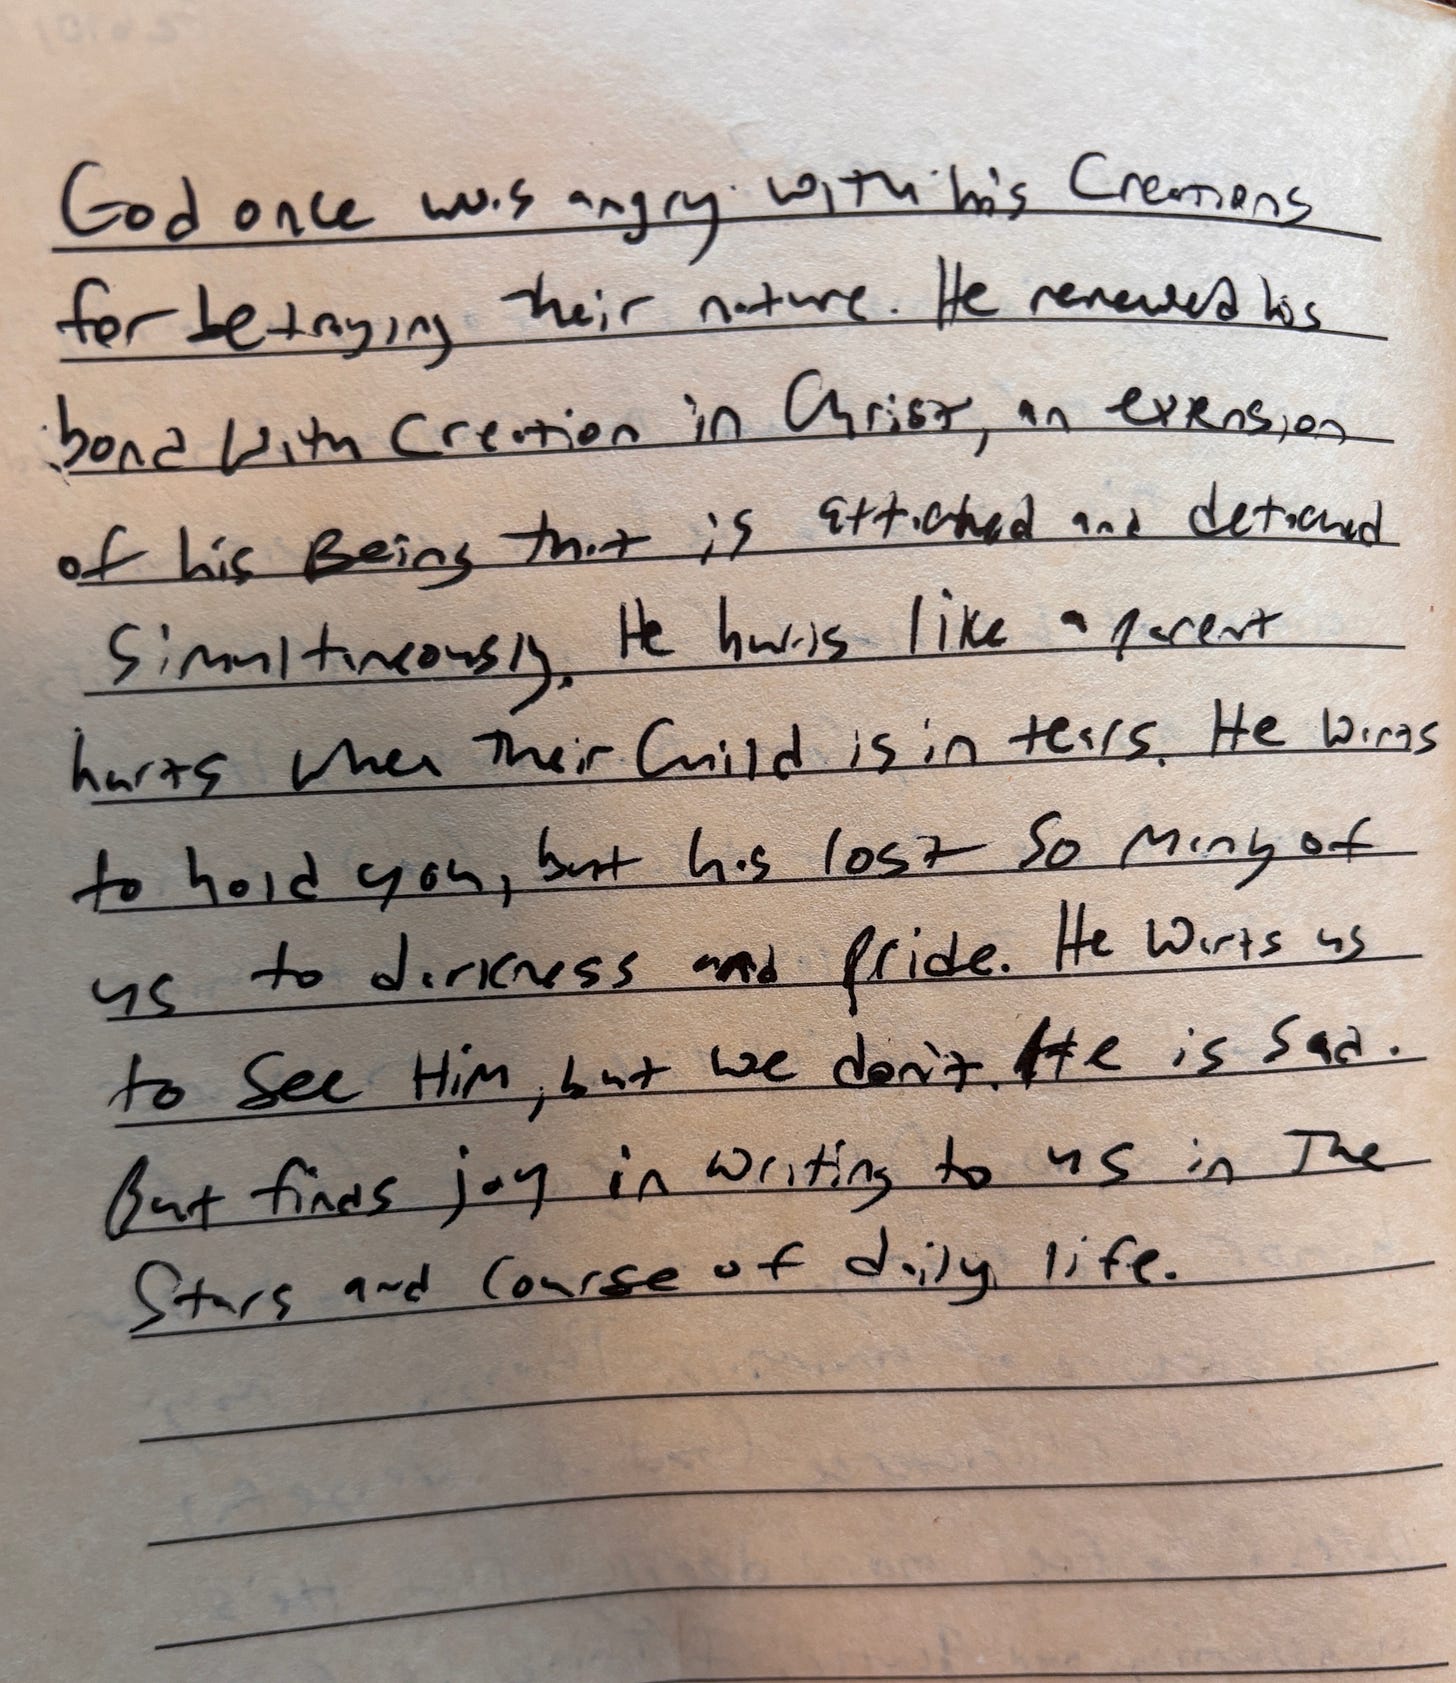 God once was angry with his Creations
for betraying their nature. He renewed his
bond with Creation in Christ, an extension
of his Being that is attached and detached
simultaneously. He hurts like a parent
hurts when their Child is in tears. He wants
to hold you, but has lost so many of
us to darkness and pride. He wants us
to see Him, but we don't. He is sad.
But finds joy in writing to us in The
Stars and Course of daily life.